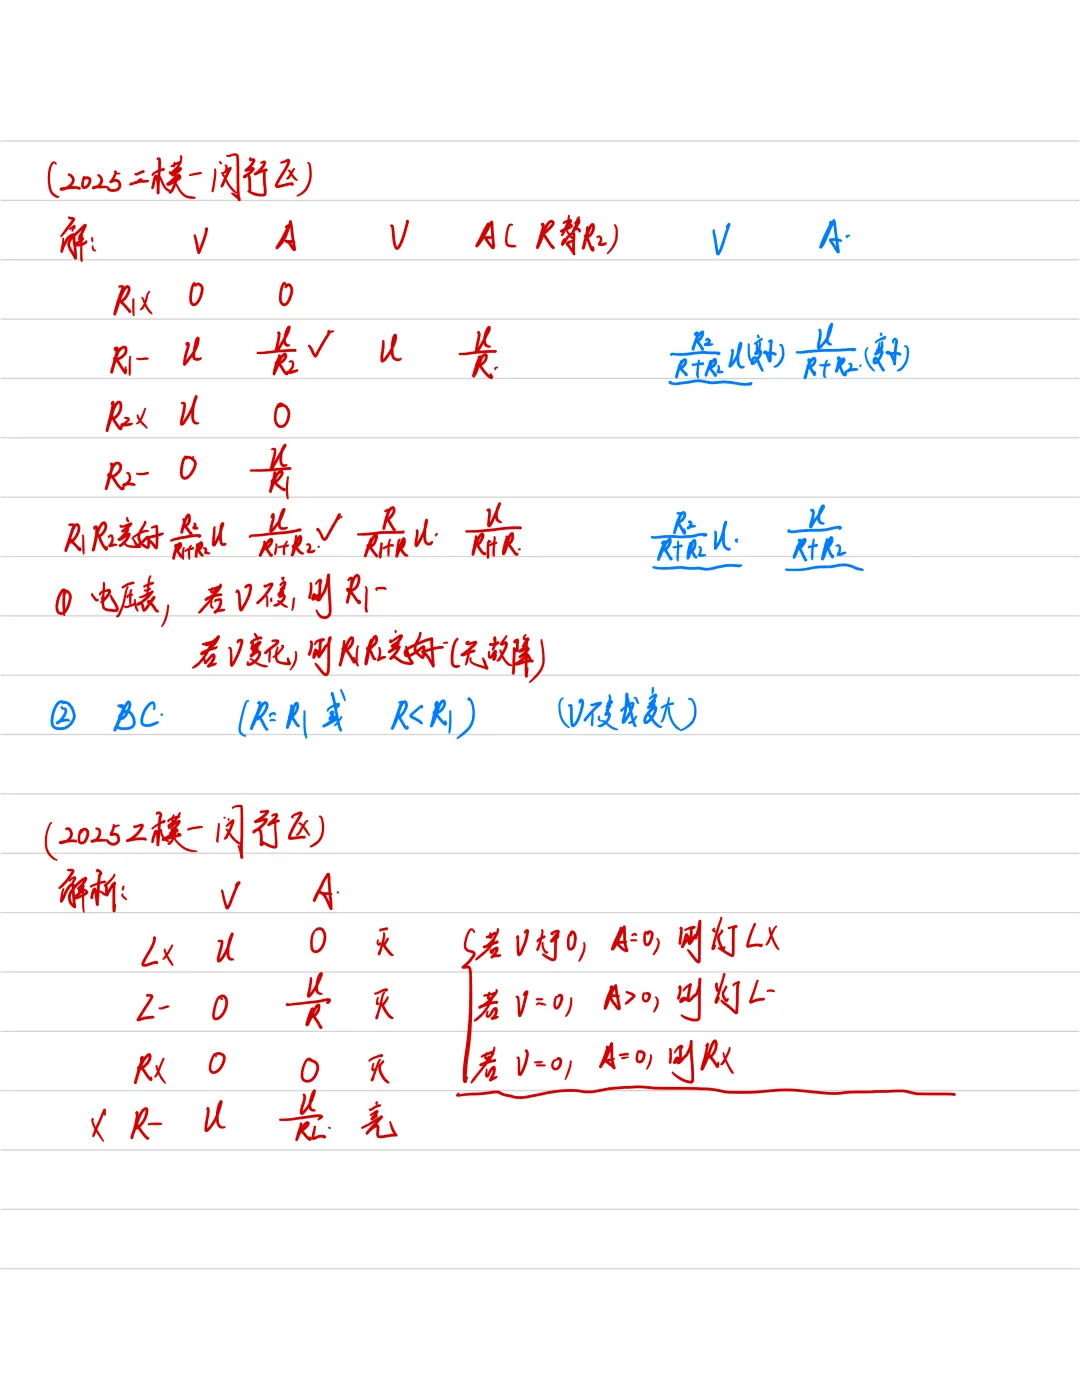 (2025二模-闵行区)
解: V A V A( R替R₂) V A.
R₁× 0 0
R₁- U U/R₂ ✓ U U/R. R₂/(R+R₂) U(变小) U/(R+R₂).(变小)
R₂× U 0
R₂- 0 U/R₁
R₁R₂完好 R₂/(R₁+R₂) U U/(R₁+R₂). ✓ R/(R₁+R) U. U/(R₁+R). R₂/(R+R₂) U. U/(R+R₂)
① 电压表, 若V不变, 则R₁-
若V变化, 则R₁R₂完好(无故障)
② BC. (R=R₁ 或 R<R₁) (V不变或变大)
(2025二模-闵行区)
解析: V A.
L× U 0 灭 {若V大于0, A=0, 则灯L×
L- 0 U/R 灭 若V=0, A>0, 则灯L-
R× 0 0 灭 若V=0, A=0, 则R×
× R- U U/RL. 亮